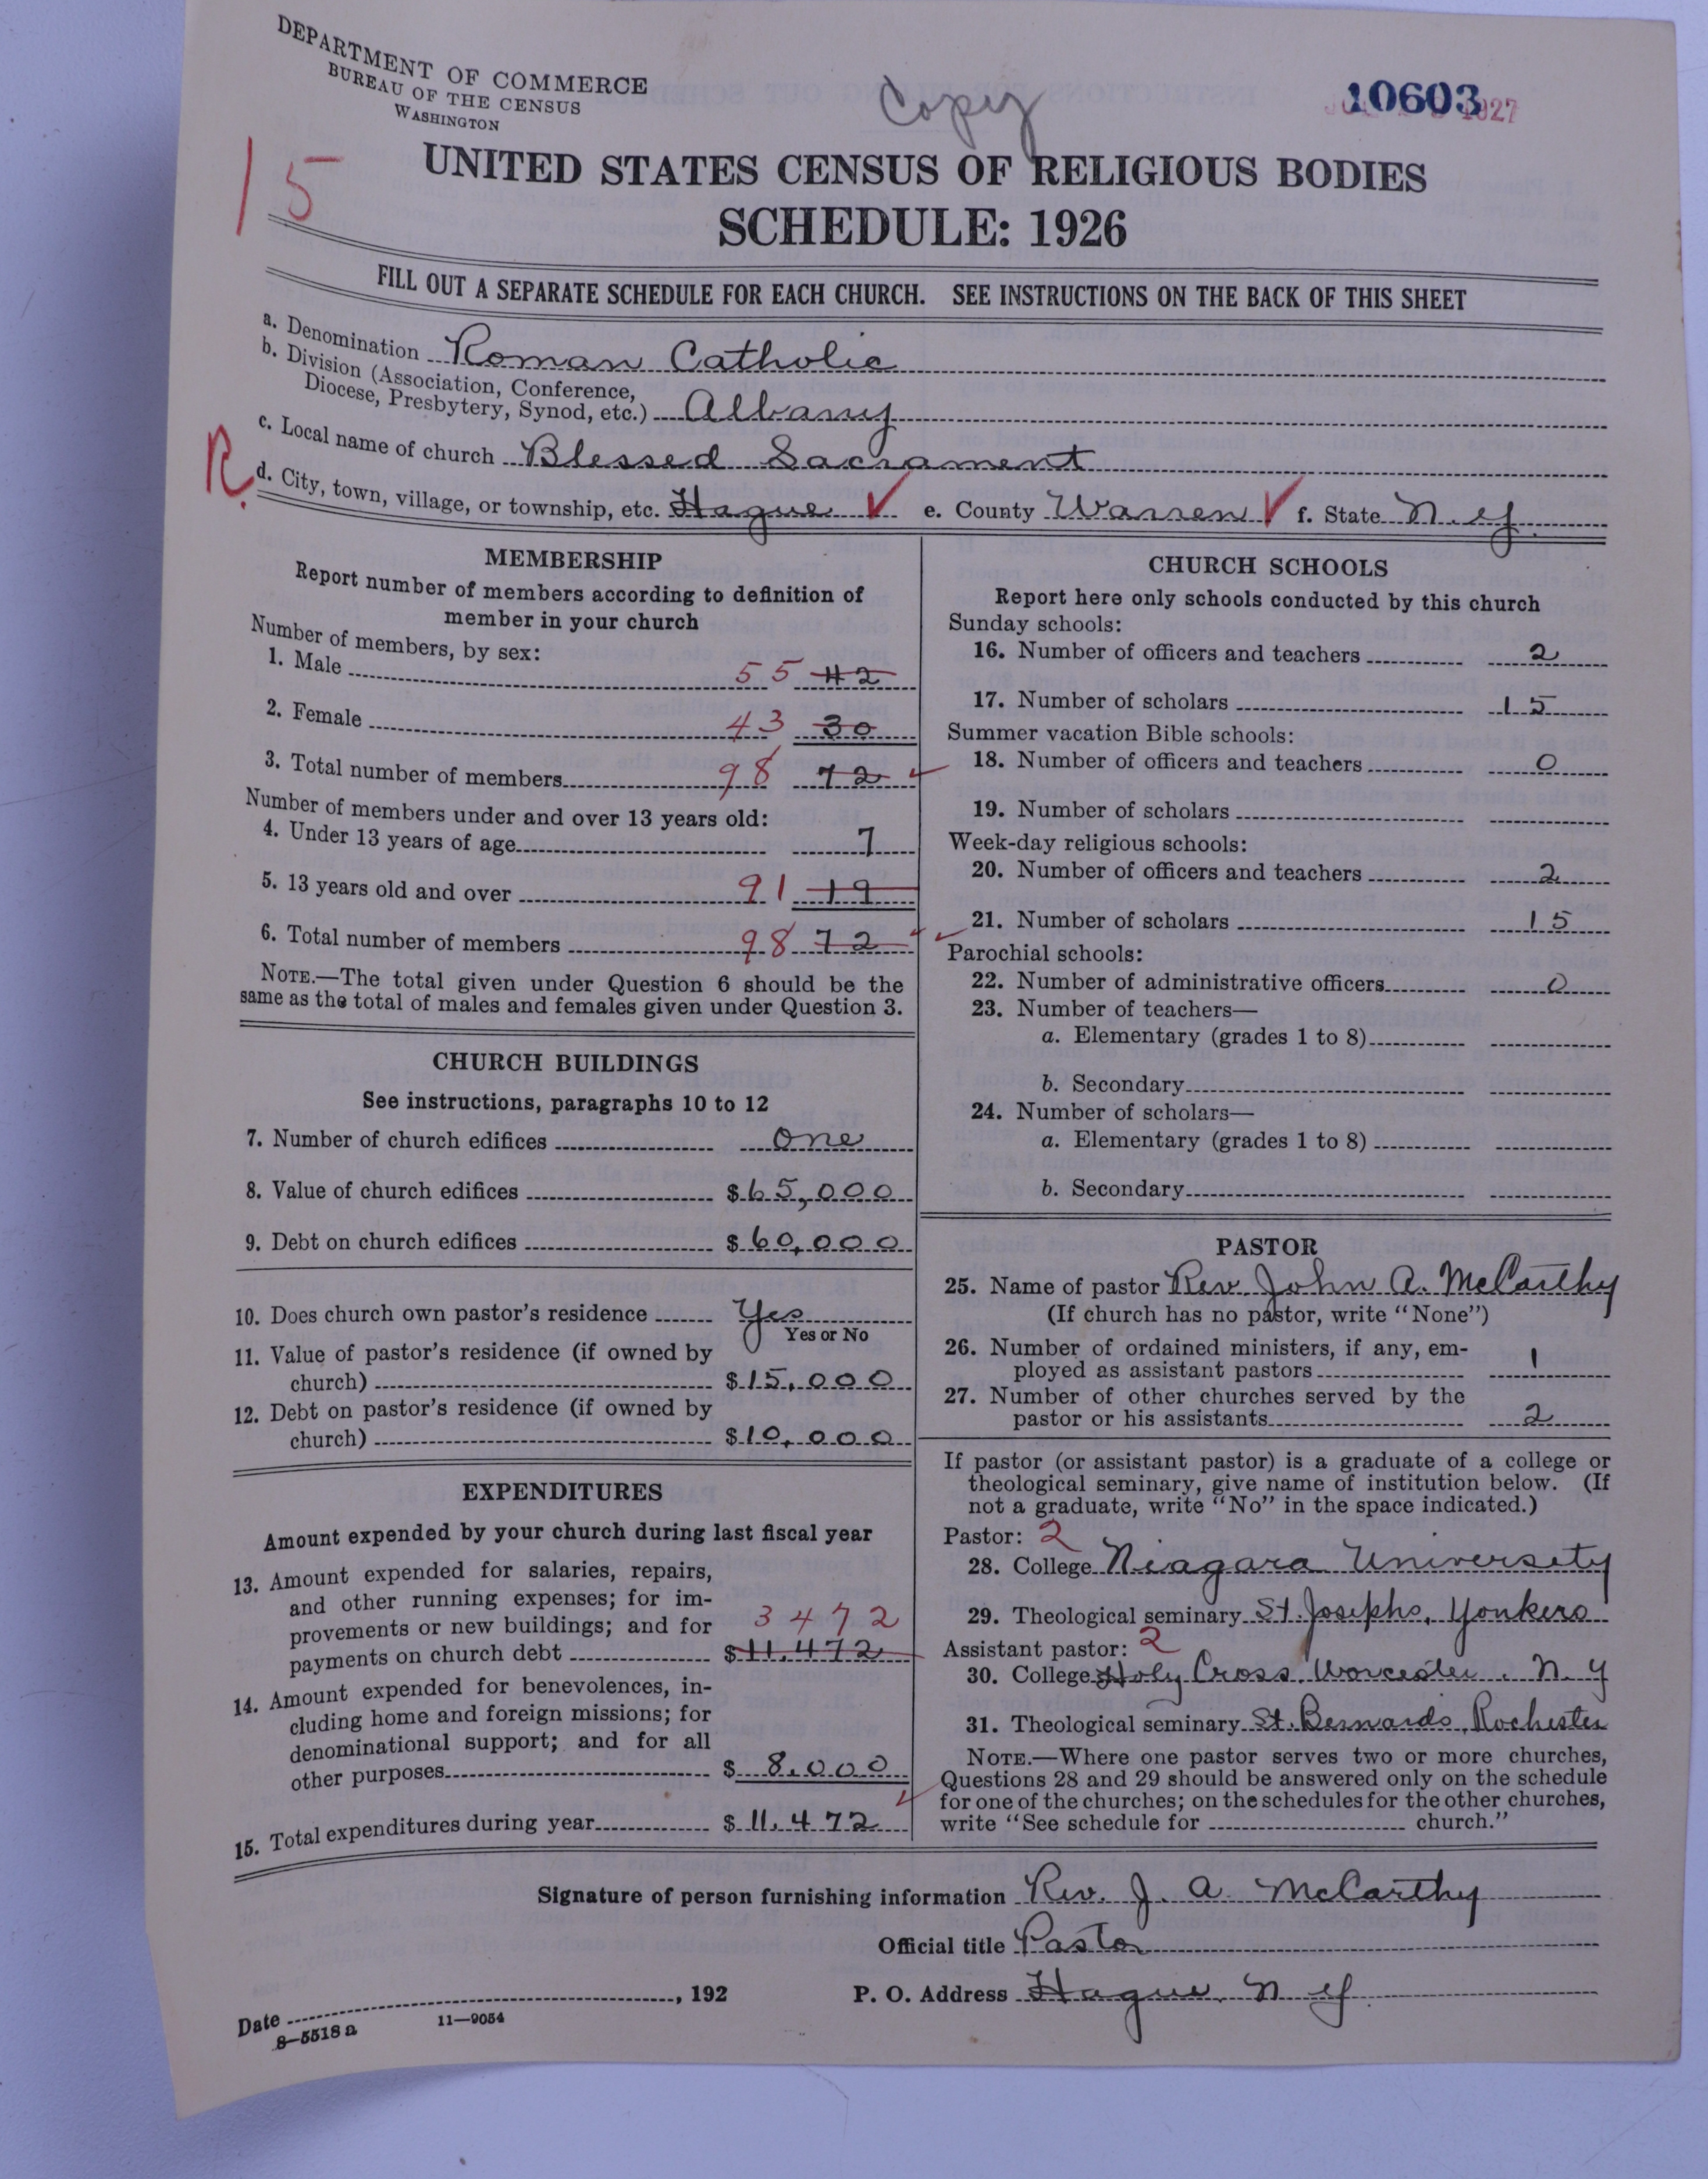 DEPARTMENT OF COMMERCE
BUREAU OF THE CENSUS
WASHINGTON
Copy
10603
1927
15
UNITED STATES CENSUS OF RELIGIOUS BODIES
SCHEDULE: 1926
FILL OUT A SEPARATE SCHEDULE FOR EACH CHURCH. SEE INSTRUCTIONS ON THE BACK OF THIS SHEET
a. Denomination Roman Catholic
b. Division (Association, Conference,
Diocese, Presbytery, Synod, etc.) Albany
c. Local name of church Blessed Sacrament
R.
d. City, town, village, or township, etc. Hague ✓ e. County Warren ✓ f. State N.Y.
MEMBERSHIP
Report number of members according to definition of
member in your church
Number of members, by sex:
1. Male 55 42
2. Female 43 30
3. Total number of members 98 72 ✓
Number of members under and over 13 years old:
4. Under 13 years of age 7
5. 13 years old and over 91 19
6. Total number of members 98 72 ✓
NOTE.—The total given under Question 6 should be the
same as the total of males and females given under Question 3.
CHURCH BUILDINGS
See instructions, paragraphs 10 to 12
7. Number of church edifices one
8. Value of church edifices $65,000
9. Debt on church edifices $60,000
10. Does church own pastor's residence Yes
Yes or No
11. Value of pastor's residence (if owned by
church) $15,000
12. Debt on pastor's residence (if owned by
church) $10,000
EXPENDITURES
Amount expended by your church during last fiscal year
13. Amount expended for salaries, repairs,
and other running expenses; for im-
provements or new buildings; and for 3472
payments on church debt $11,472
14. Amount expended for benevolences, in-
cluding home and foreign missions; for
denominational support; and for all
other purposes $8,000
15. Total expenditures during year $11,472 ✓
CHURCH SCHOOLS
Report here only schools conducted by this church
Sunday schools:
16. Number of officers and teachers 2
17. Number of scholars 15
Summer vacation Bible schools:
18. Number of officers and teachers 0
19. Number of scholars
Week-day religious schools:
20. Number of officers and teachers 2
21. Number of scholars 15
Parochial schools:
22. Number of administrative officers 0
23. Number of teachers—
a. Elementary (grades 1 to 8)
b. Secondary
24. Number of scholars—
a. Elementary (grades 1 to 8)
b. Secondary
PASTOR
25. Name of pastor Rev. John A. McCarthy
(If church has no pastor, write "None")
26. Number of ordained ministers, if any, em-
ployed as assistant pastors 1
27. Number of other churches served by the
pastor or his assistants 2
If pastor (or assistant pastor) is a graduate of a college or
theological seminary, give name of institution below. (If
not a graduate, write "No" in the space indicated.)
Pastor: 2
28. College Niagara University
29. Theological seminary St. Josephs, Yonkers
Assistant pastor: 2
30. College Holy Cross. Worcester. N.Y
31. Theological seminary St. Bernards, Rochester
NOTE.—Where one pastor serves two or more churches,
Questions 28 and 29 should be answered only on the schedule
for one of the churches; on the schedules for the other churches,
write "See schedule for church."
Signature of person furnishing information Rev. J. A McCarthy
Official title Pastor
Date , 192 P. O. Address Hague, N Y.
8—5518a 11—9054